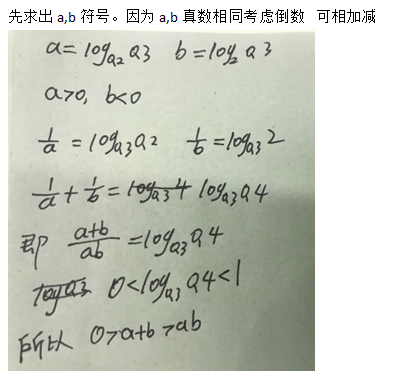 先求出 a,b 符号。因为 a,b 真数相同考虑倒数 可相加减
a=log₀.₂0.3 b=log₂0.3
a>0, b<0
1/a=log₀.₃0.2 1/b=log₀.₃2
1/a+1/b=log₀.₃4 log₀.₃0.4
即 a+b/ab=log₀.₃0.4
log0.3 0<log₀.₃0.4<1
所以 0>a+b>ab